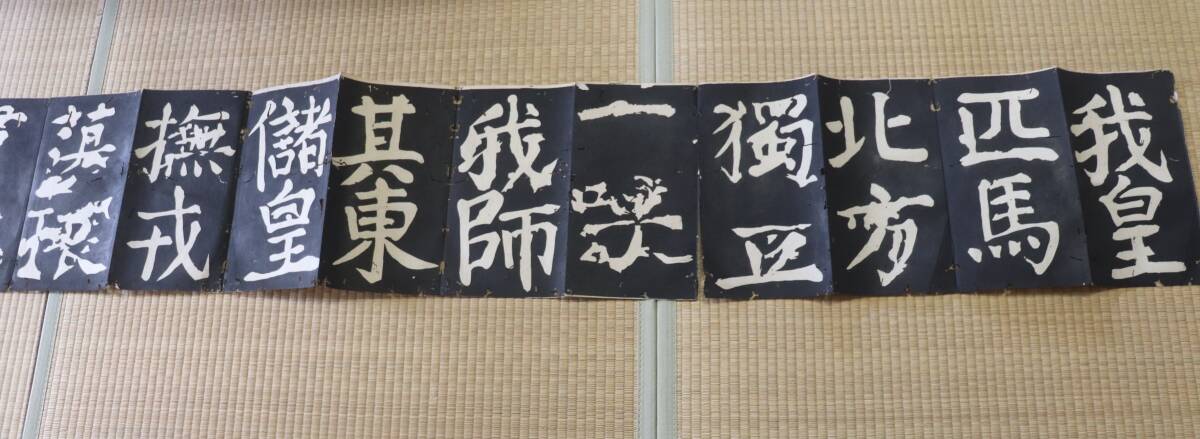 我皇
匹馬
北方
獨立
一
我師
其東
儲皇
撫戎
蕩攘